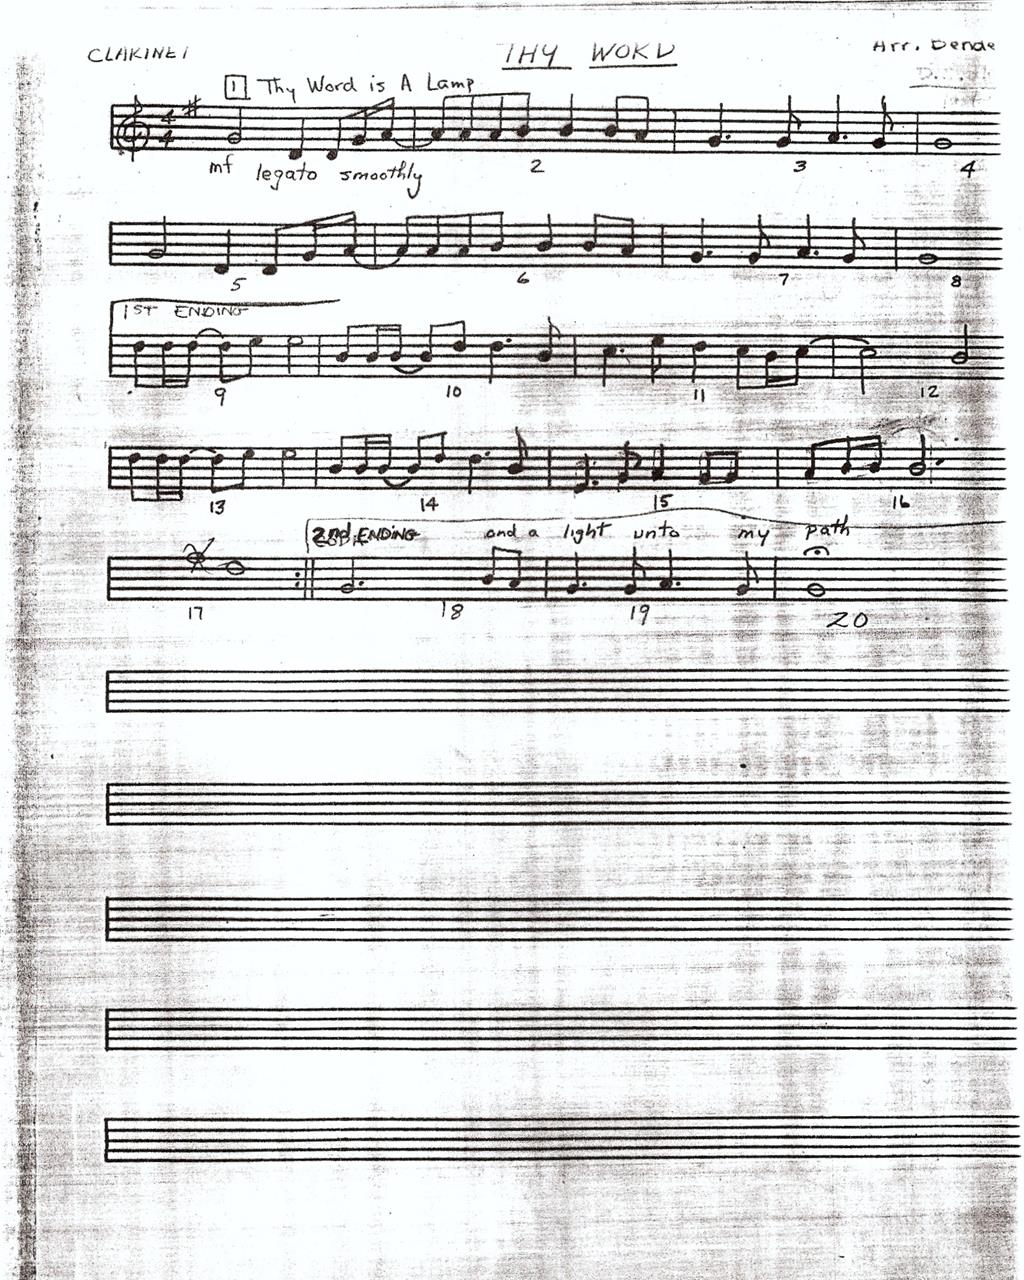 CLARINET THY WORD Arr. Dende
1 Thy Word is A Lamp
4
4
mf legato smoothly 2 3 4
5 6 7 8
1ST ENDING
9 10 11 12
13 14 15 16
2nd ENDING and a light unto my path
17 18 19 20